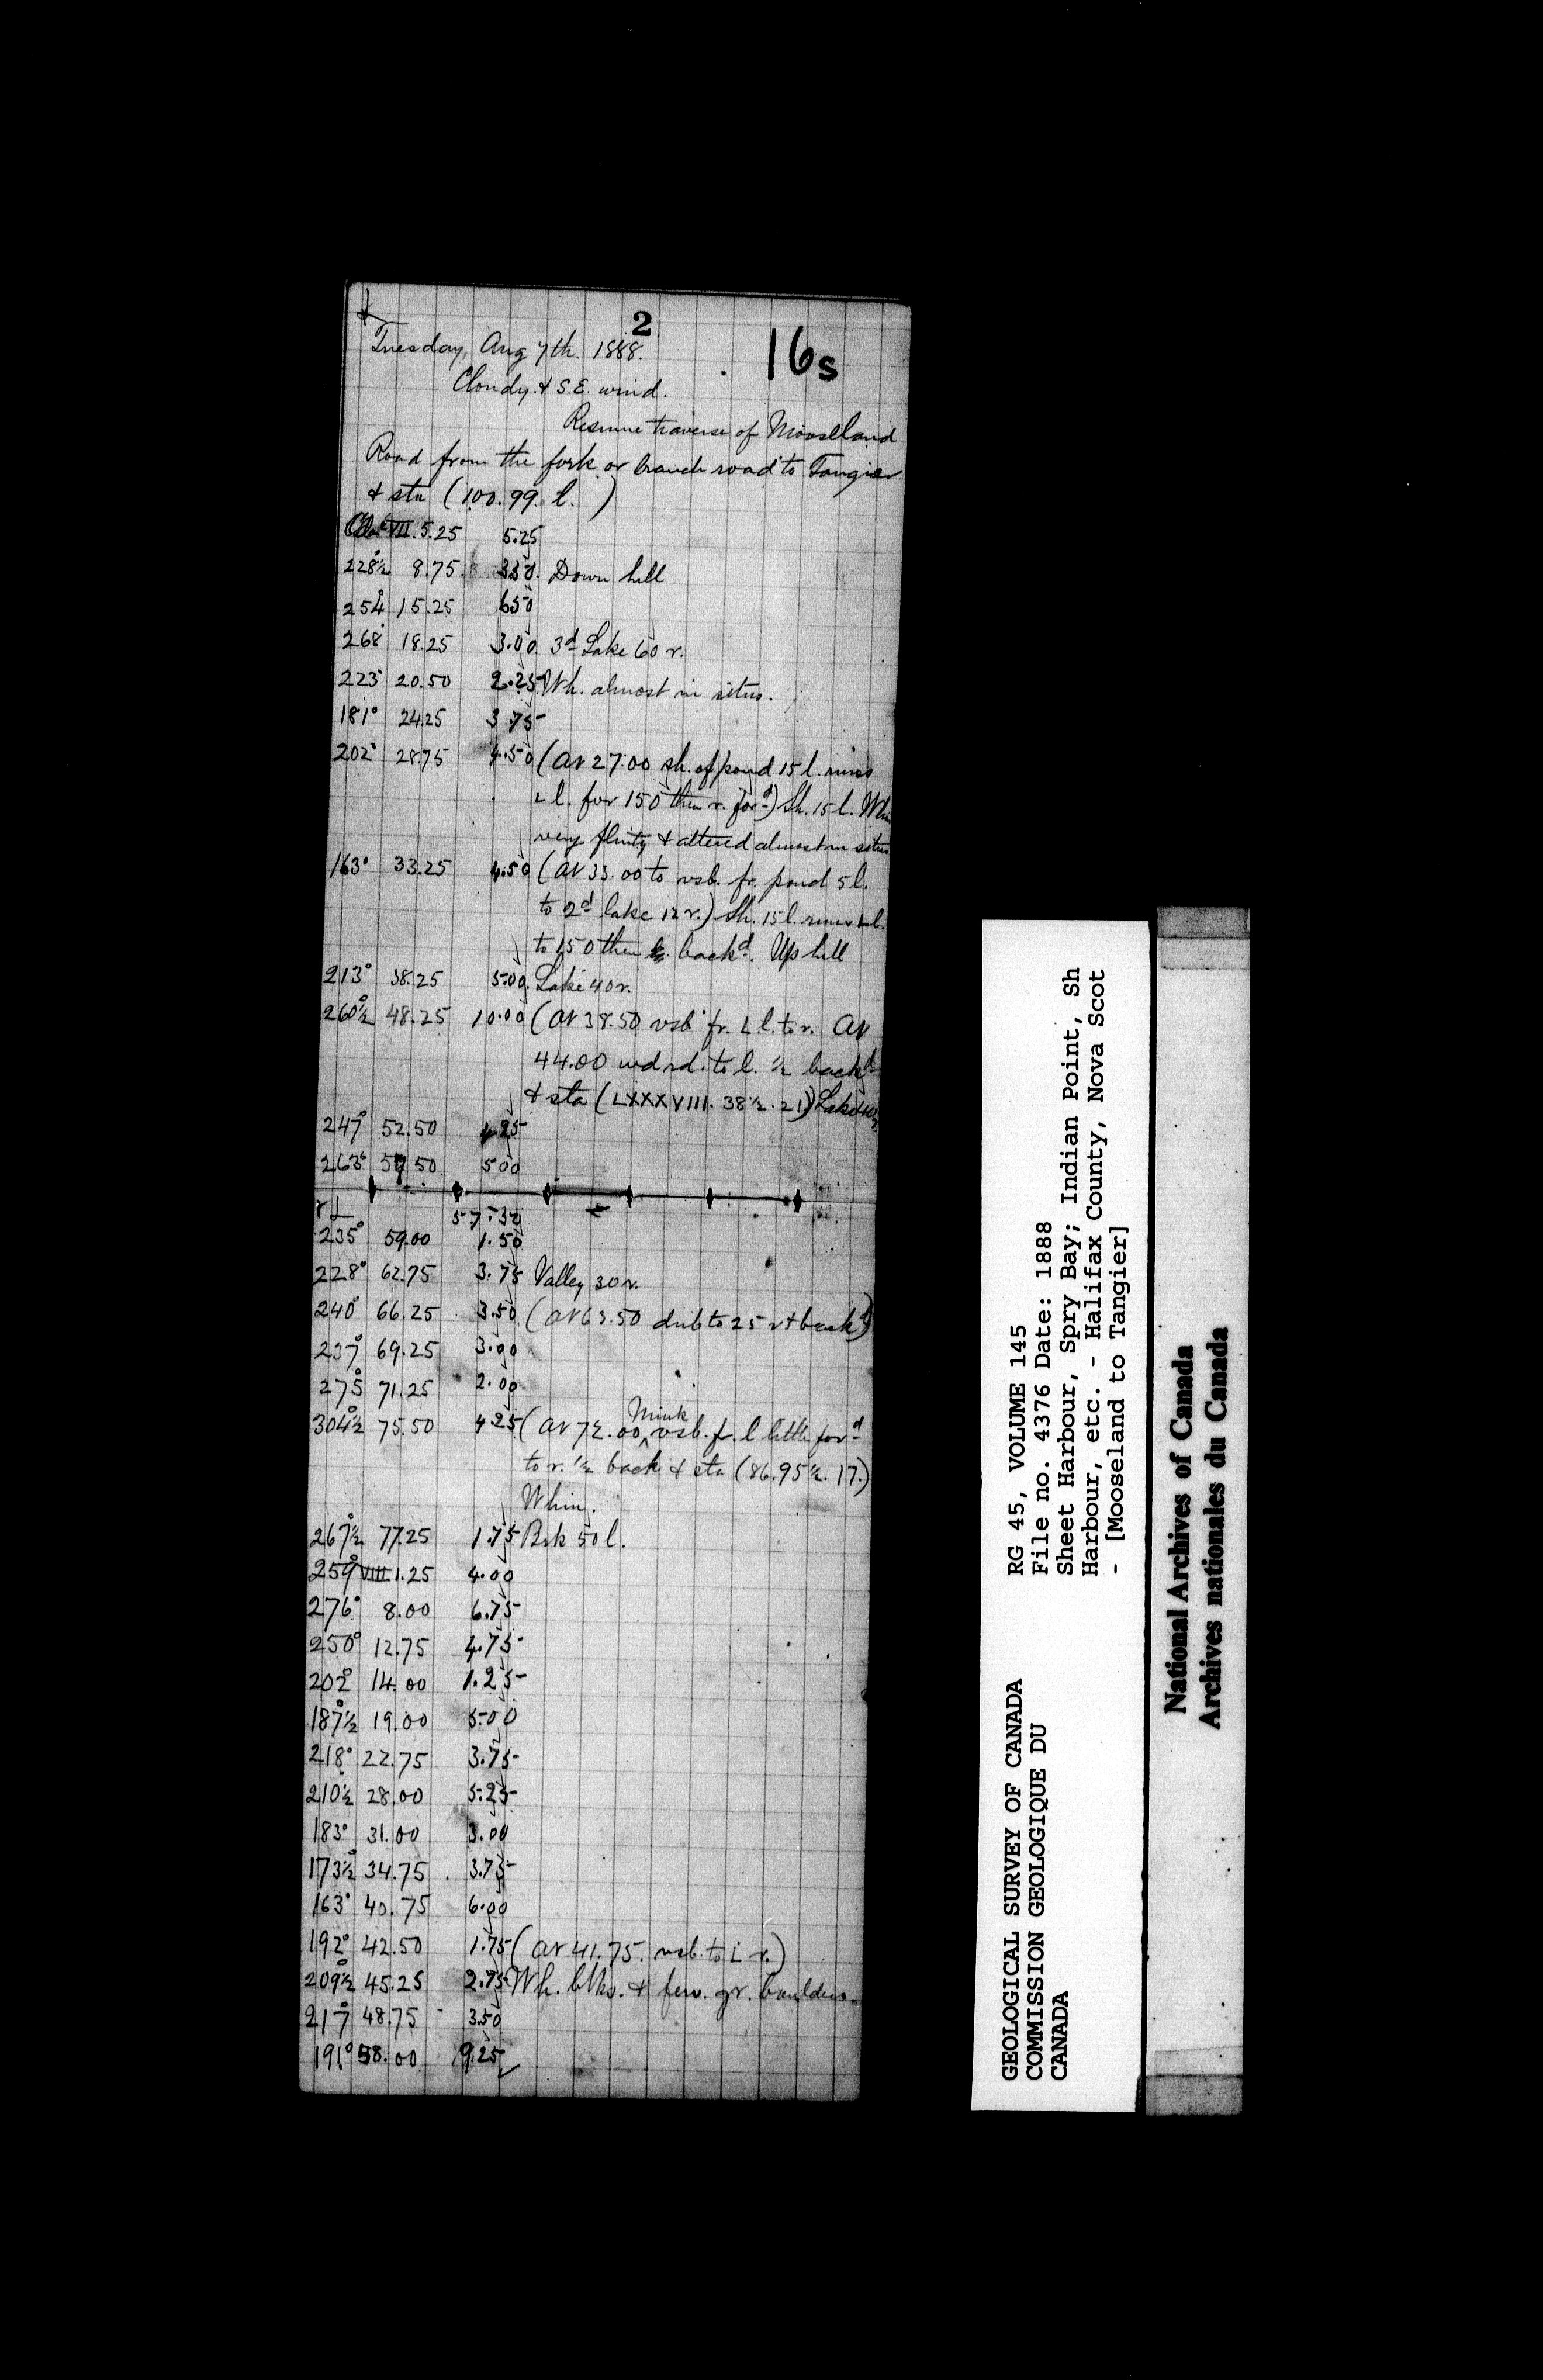 2
16s
Tuesday, Aug 7th. 1888.
Cloudy & S.E. wind.
Resume traverse of Mooseland
Road from the fork or branch road to Tangier
& sta (100.99. l. )
VII. 5.25 5.25
228½° 8.75 3.50. Down hill
254° 15.25 6.50
268° 18.25 3.00. 3d Lake 60 r.
223° 20.50 2.25 Wh. almost in situ.
181° 24.25 3.75
202° 28.75 4.50 (At 27.00 sh. of pond 15 l. runs
L l. for 150 then r. ford) Sh. 15 l. Whin
very flinty & altered almost in situ
163° 33.25 4.50 (At 33.00 to vsb. fr. pond 5 l.
to 2d lake 12 r.) Sh. 15 l. runs L l.
to 150 then backd. Up hill
213° 38.25 5.00. Lake 40 r.
260½° 48.25 10.00 (At 38.50 vsb fr. L l. to r. At
44.00 wd rd. to l. ½ backd
& sta (LXXXVIII. 38½. 21) Lake 40 r.
247° 52.50 4.25
263° 57.50 5.00
r L
57.50
235° 59.00 1.50
228° 62.75 3.75 Valley 30 r.
240° 66.25 3.50 (At 63.50 dub to 25 r & backd)
237° 69.25 3.00
275° 71.25 2.00
304½° 75.50 4.25 (At 72.00 Mink vsb. fr. l little ford
to r. ½ back & sta (86.95½. 17.)
Whin.
267½° 77.25 1.75 Brk 50 l.
259° VIII 1.25 4.00
276° 8.00 6.75
250° 12.75 4.75
202° 14.00 1.25
187½° 19.00 5.00
218° 22.75 3.75
210½° 28.00 5.25
183° 31.00 3.00
173½° 34.75 3.75
163° 40.75 6.00
192° 42.50 1.75 (At 41.75. vsb. to L r.)
209½° 45.25 2.75 Wh. blks. & few. gr. boulders.
217° 48.75 3.50
191° 58.00 9.25
GEOLOGICAL SURVEY OF CANADA
COMMISSION GEOLOGIQUE DU
CANADA
RG 45, VOLUME 145
File no. 4376 Date: 1888
Sheet Harbour, Spry Bay; Indian Point, Sh
Harbour, etc. - Halifax County, Nova Scot
- [Mooseland to Tangier]
National Archives of Canada
Archives nationales du Canada